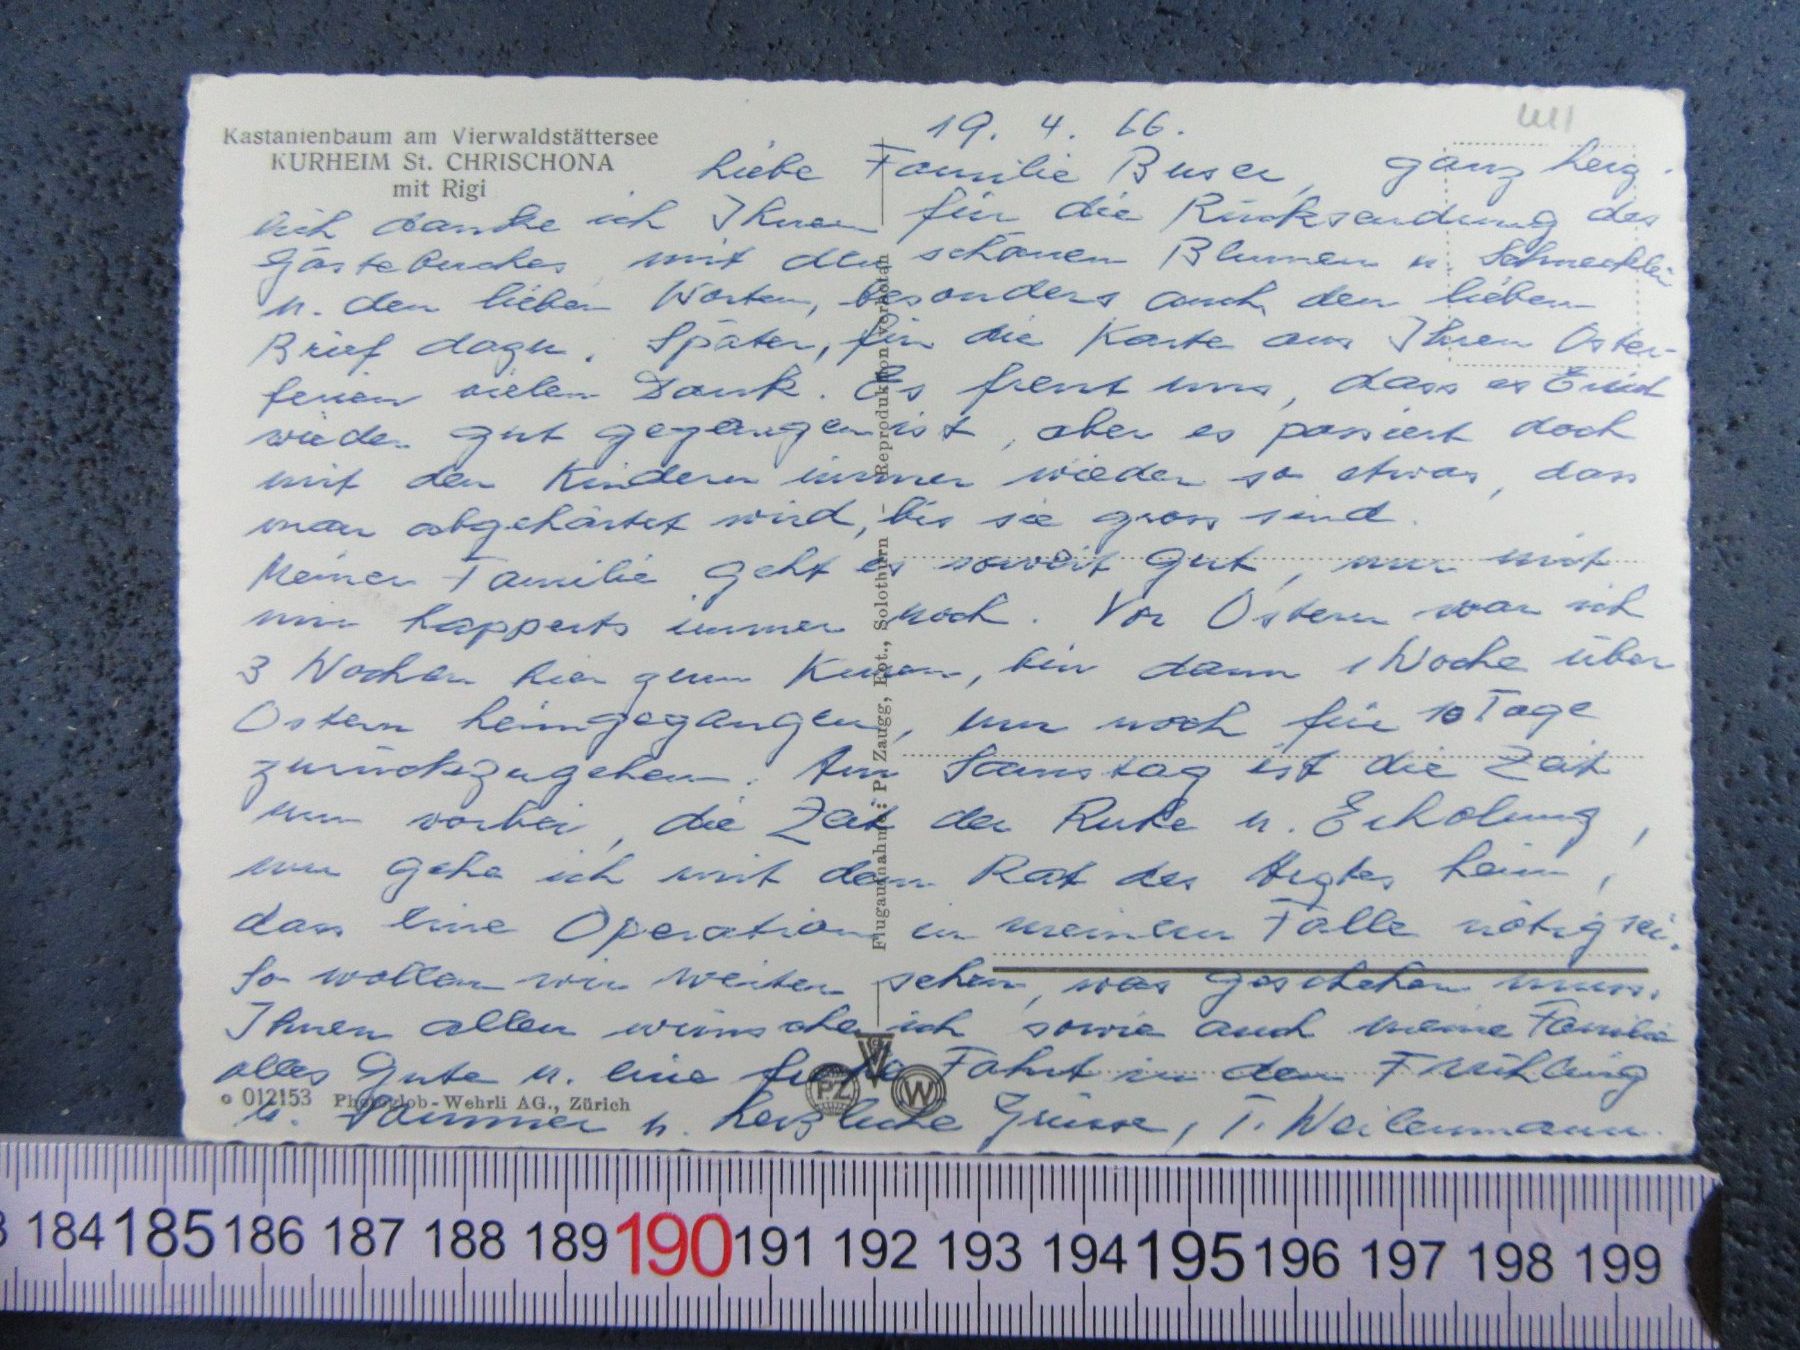 Kastanienbaum am Vierwaldstättersee
KURHEIM St. CHRISCHONA
mit Rigi
19. 4. 66.
Liebe Familie Buser, ganz herz-
lich danke ich Ihnen für die Rücksendung des
Gästebuches mit den schönen Blumen u.
u. den lieben Worten, besonders auch den lieben
Brief dazu. Später, für die Karte aus Ihren Oster-
ferien vielen Dank. Es freut uns, dass es
wieder gut gegangen ist, aber es passiert doch
mit den Kindern immer wieder so etwas, dass
man abgehärtet wird, bis sie gross sind.
Meiner Familie geht es soweit gut, nur mit
mir happerts immer noch. Vor Ostern war ich
3 Wochen hier zum Kuren, bin dann 1 Woche über
Ostern heimgegangen, um noch für 10 Tage
zurückzugehen. Am Samstag ist die Zeit
um vorbei, die Zeit der Ruhe u. Erholung,
nun gehe ich mit dem Rat des Arztes heim,
dass eine Operation in meinem Falle nötig sei.
So wollen wir weiter sehen, was geschehen muss.
Ihnen allen wünsche ich sowie auch meine Familie
alles Gute u. eine Fahrt in den Frühling
u. Sommer u. herzliche Grüsse, T. Weilenmann.
Flugaufnahme: P. Zaugg, Fot., Solothurn – Reproduktion verboten
PZ
W
012153 Photoglob-Wehrli AG., Zürich
184 185 186 187 188 189 190 191 192 193 194 195 196 197 198 199